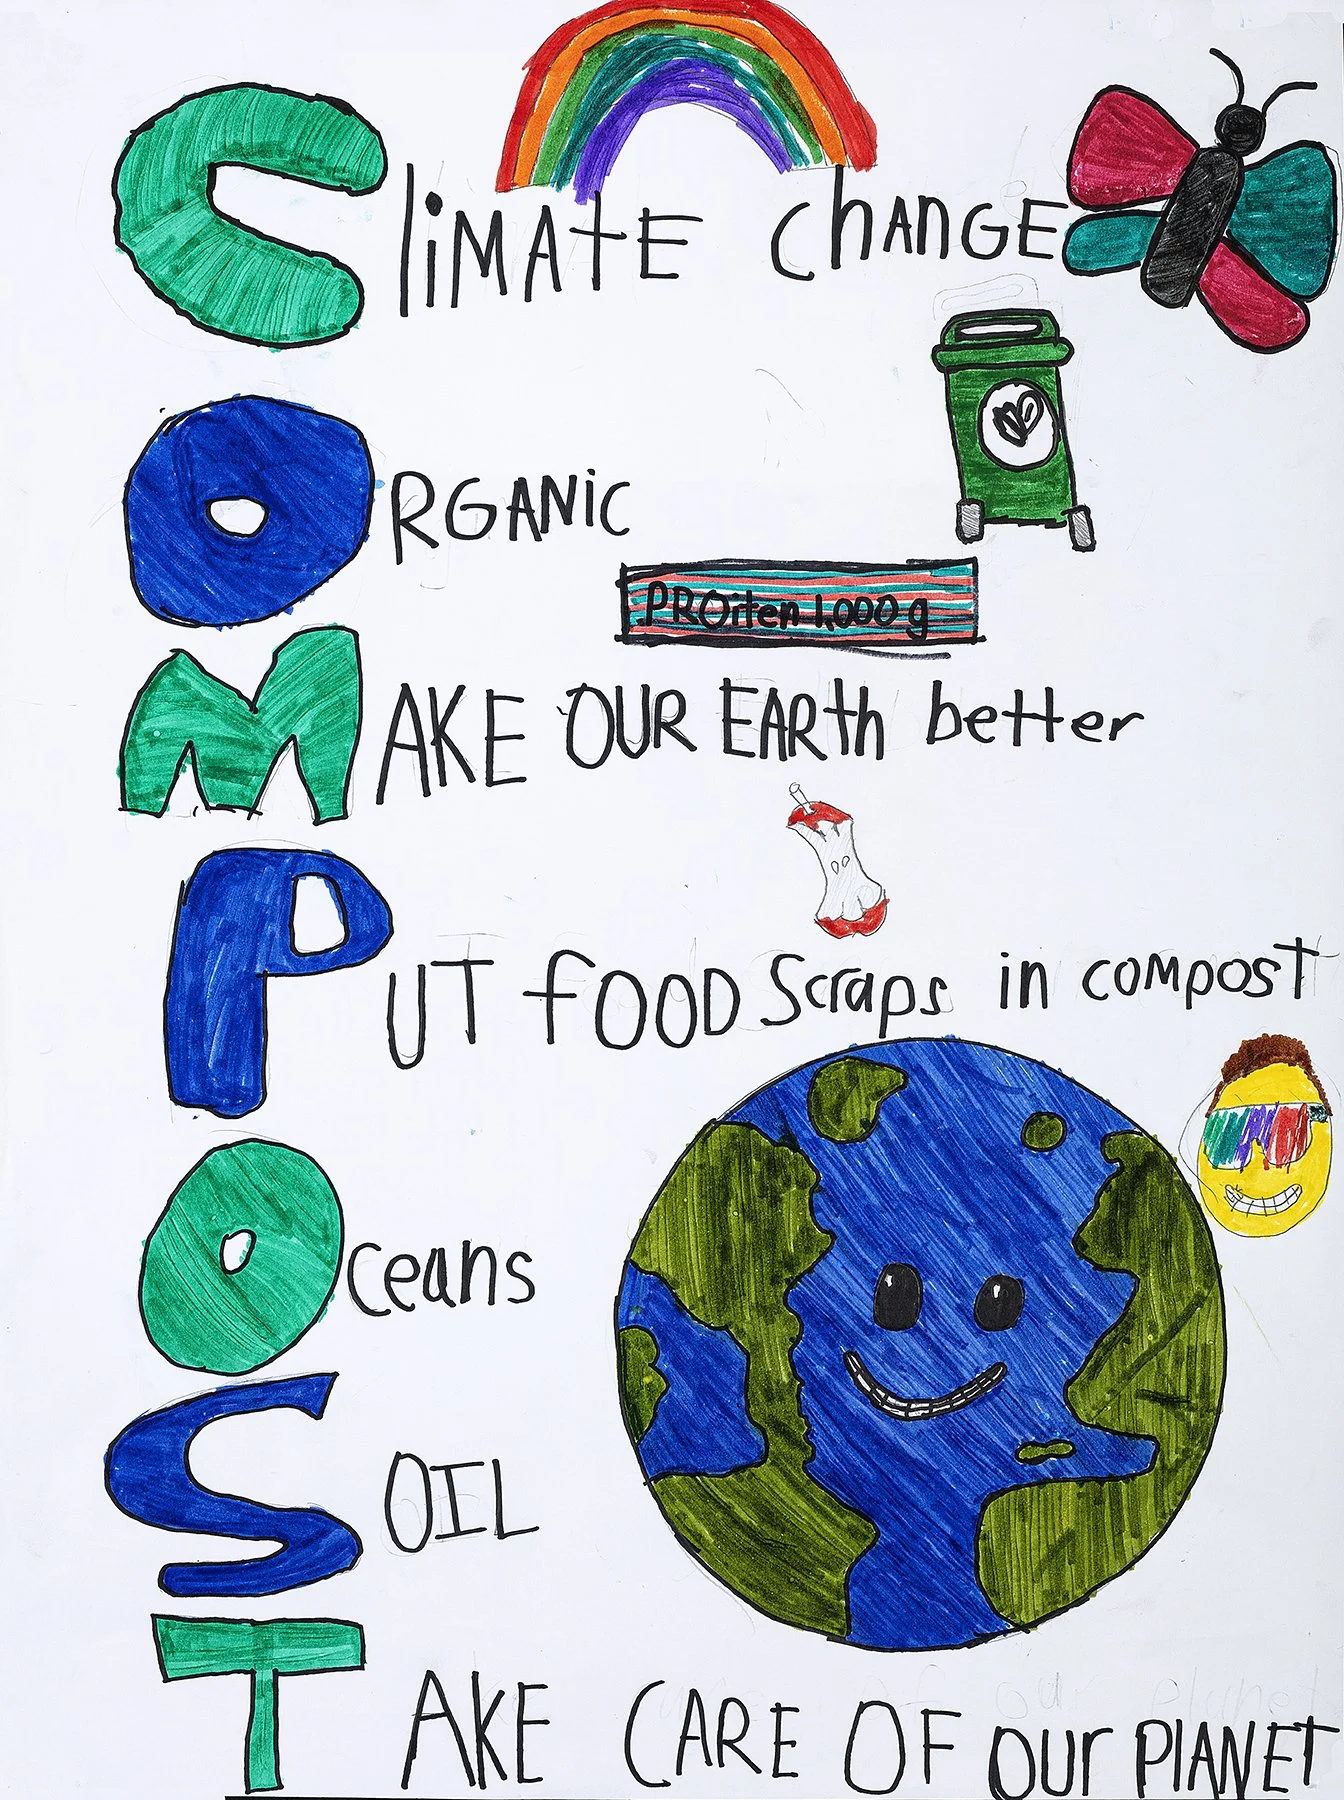 Climate change
ORGANic
PROiten 1,000 g
MAKE OUR EARth better
PUT fOOD Scraps in compost
Oceans
SOIL
TAKE CARE OF our PlANET